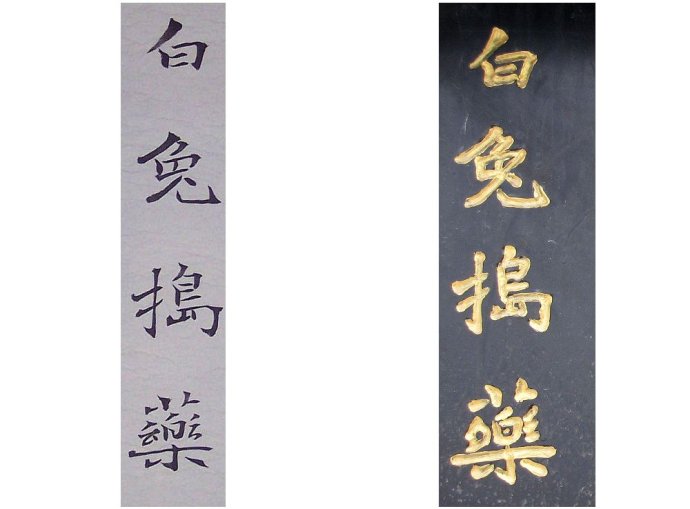 白兔搗藥
白兔搗藥